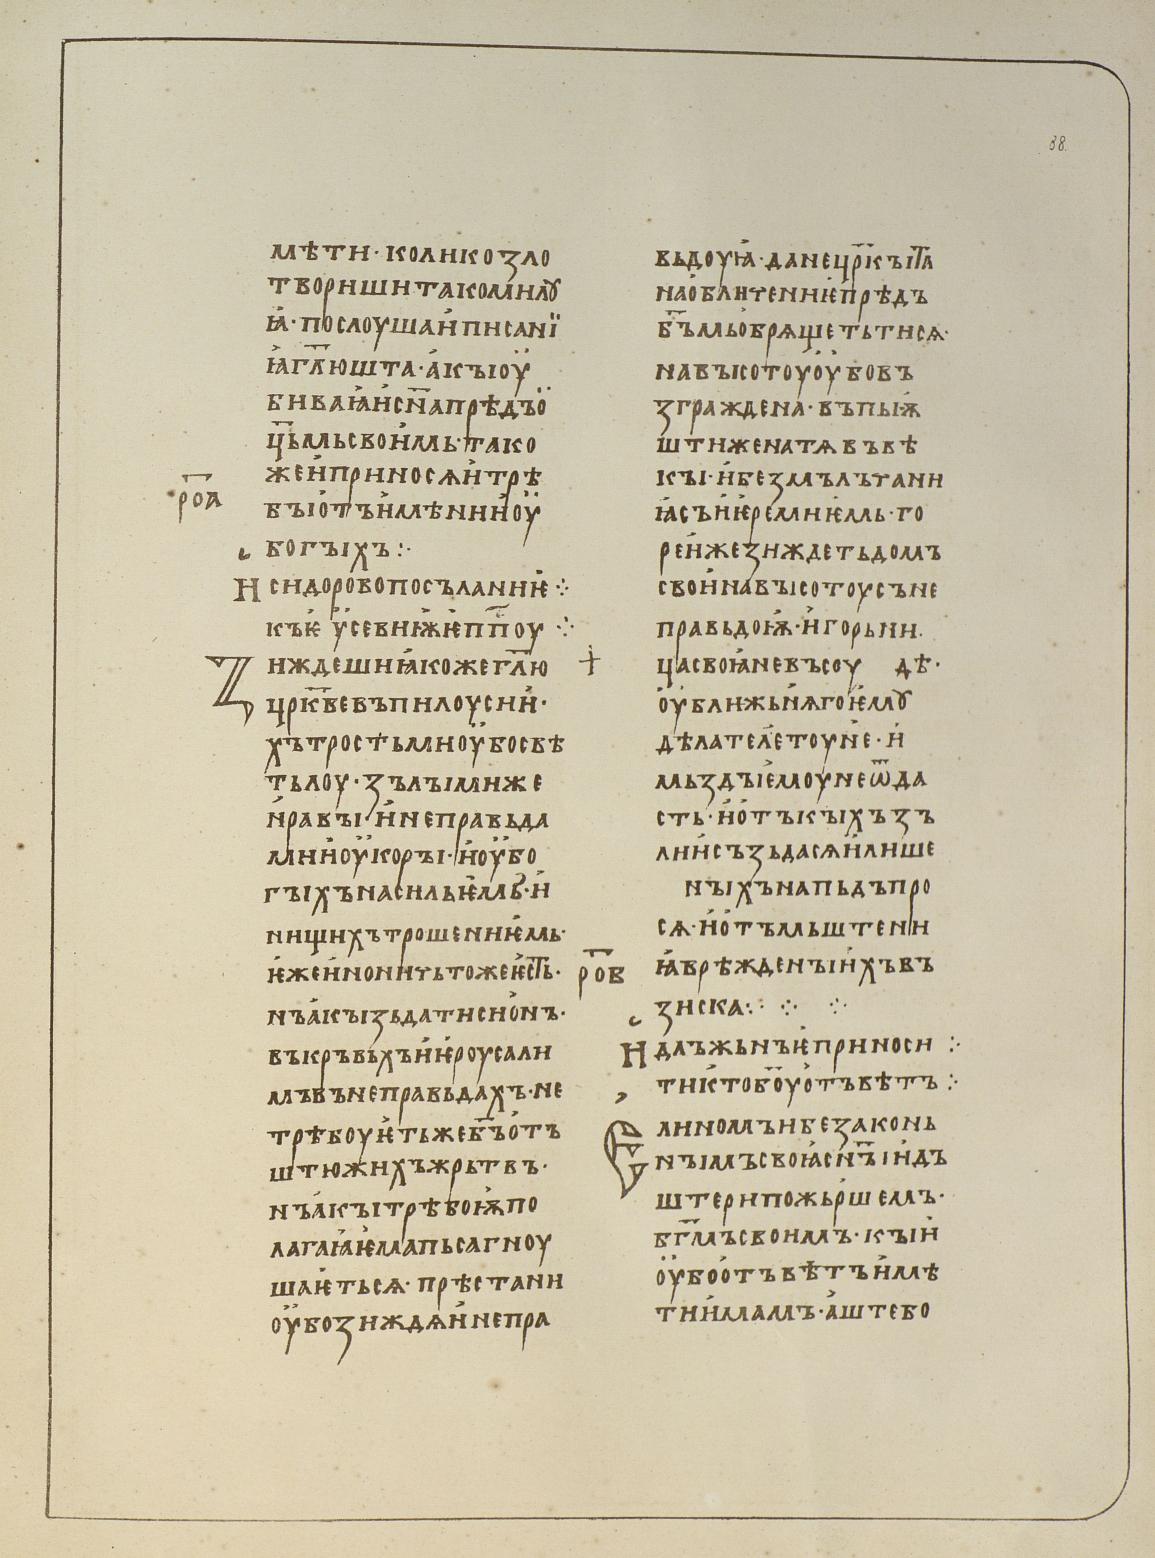 88.
мѣти· колико зло
твориши такомилꙋ
ꙗ· послоушаи писанї
ꙗ гл҃юшта· акыи оу
биваꙗи сн҃а прѣдъ о
ц҃ьмь своимь· тако
же и приносѧи трѣ
р҃оа
бы отъ имѣнии оу
богыихъ:·
Исидоров о посъланиѥ ·:·
къ ѥусевиѭ ѥпп҃оу ·:·
Зиждеши ꙗкоже гл҃ю
цр҃кве въ пилоусии·
хътростьми оубо свѣ
тьлоу· зълыими же
нравы· и неправьда
ми и оукоры· и оубо
гыихъ насильѥмь· и
нищиихъ трошениѥмь·
ѥже ино ничьтоже ѥст҃ь·
нъ акы зьдати сионъ·
въ кръвьхъ и ѥроусали
мъ въ неправьдахъ· не
трѣбоуѥть же бъ҃ отъ
штюжиихъ жрьтвъ·
нъ акы трѣбоѭ по
лагаꙗѥма пьса гноу
шаѥтьсѧ· прѣстани
оубо зиждѧи непра
вьдоуꙗ· да не цр҃кы та҃
на обличениѥ прѣдъ
бъ҃мь обрящетьтисѧ·
на высотоу оубо въ
зграждена· въпыѭ
шти же на тѧ въ вѣ
кы· и безмълъчани
ꙗ съ иѥремиѥмь· го
ре иже зиждеть домъ
свои на высотоу съ не
правьдоѭ· и горьни
+
ца своꙗ не въ соу дѣ·
оу ближьнѧго ѥмꙋ
дѣлателе тоуне· и
мьзды ѥмоу не ѿда
сть· и отъ кыихъ зъ
лии съзьдасѧ и лише
ныихъ напьдъ про
сѧ· и отъмьштени
р҃ов
ꙗ врѣжденыихъ въ
зиска:· ·:· ·:·
Идлъжьнъ ѥ приноси
ти кто бо҃у отъвѣтъ ·:·
Єлиномъ и безаконь
ныимъ своꙗ сн҃ъı и дъ
штери пожьршемъ·
бг҃мъ своимъ· кыи
оубо отъвѣтъ имѣ
ти имамъ· аште бо